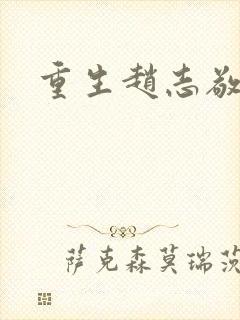 重生趙志敬
萨克森莫瑞茨